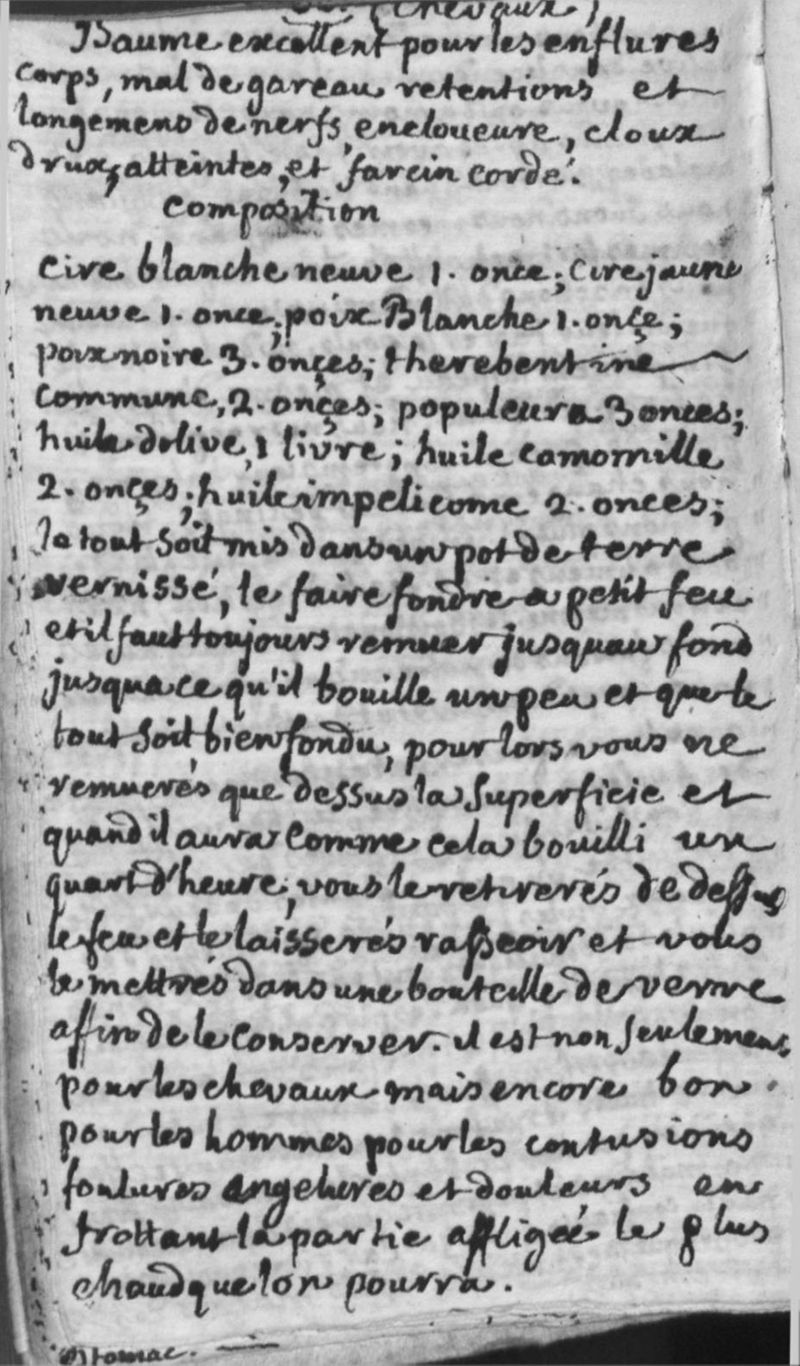 (chevaux)
Baume excellent pour les enflures
corps, mal de gareau retentions et
longemens de nerfs, encloueure, cloux
drux, atteintes, et farcin cordé.
composition
cire blanche neuve 1. once; cire jaune
neuve 1. once; poix Blanche 1. onçe;
poix noire 3. onçes; therebentine
commune, 2. onçes; populeura 3 onces;
huile dolive, 1 livre; huile camomille
2. onçes; huile impelicome 2. onces;
le tout soit mis dans un pot de terre
vernissé, le faire fondre a petit feu
et il faut toujours remuer jusquau fond
jusqua ce qu'il bouille un peu et que le
tout soit bien fondu, pour lors vous ne
remuerés que dessus la superficie et
quand il aura comme cela bouilli un
quart d'heure, vous le retirerés de dessus
le feu et le laisserés rasseoir et vous
le mettrés dans une bouteille de verre
affin de le conserver. il est non seulement
pour les chevaux mais encore bon
pour les hommes pour les contusions
foulures engelures et douleurs en
frottant la partie affligeé le plus
chaud que lon pourra.
Stomac.